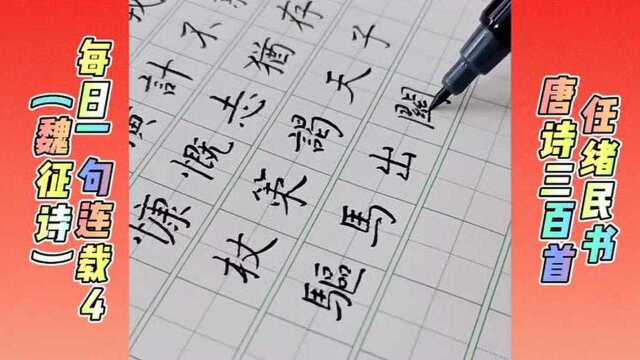 每日一句连载4
(魏征诗)
計不
慷慨志猶存
杖策謁天子
驅馬出關
任绪民书
唐诗三百首